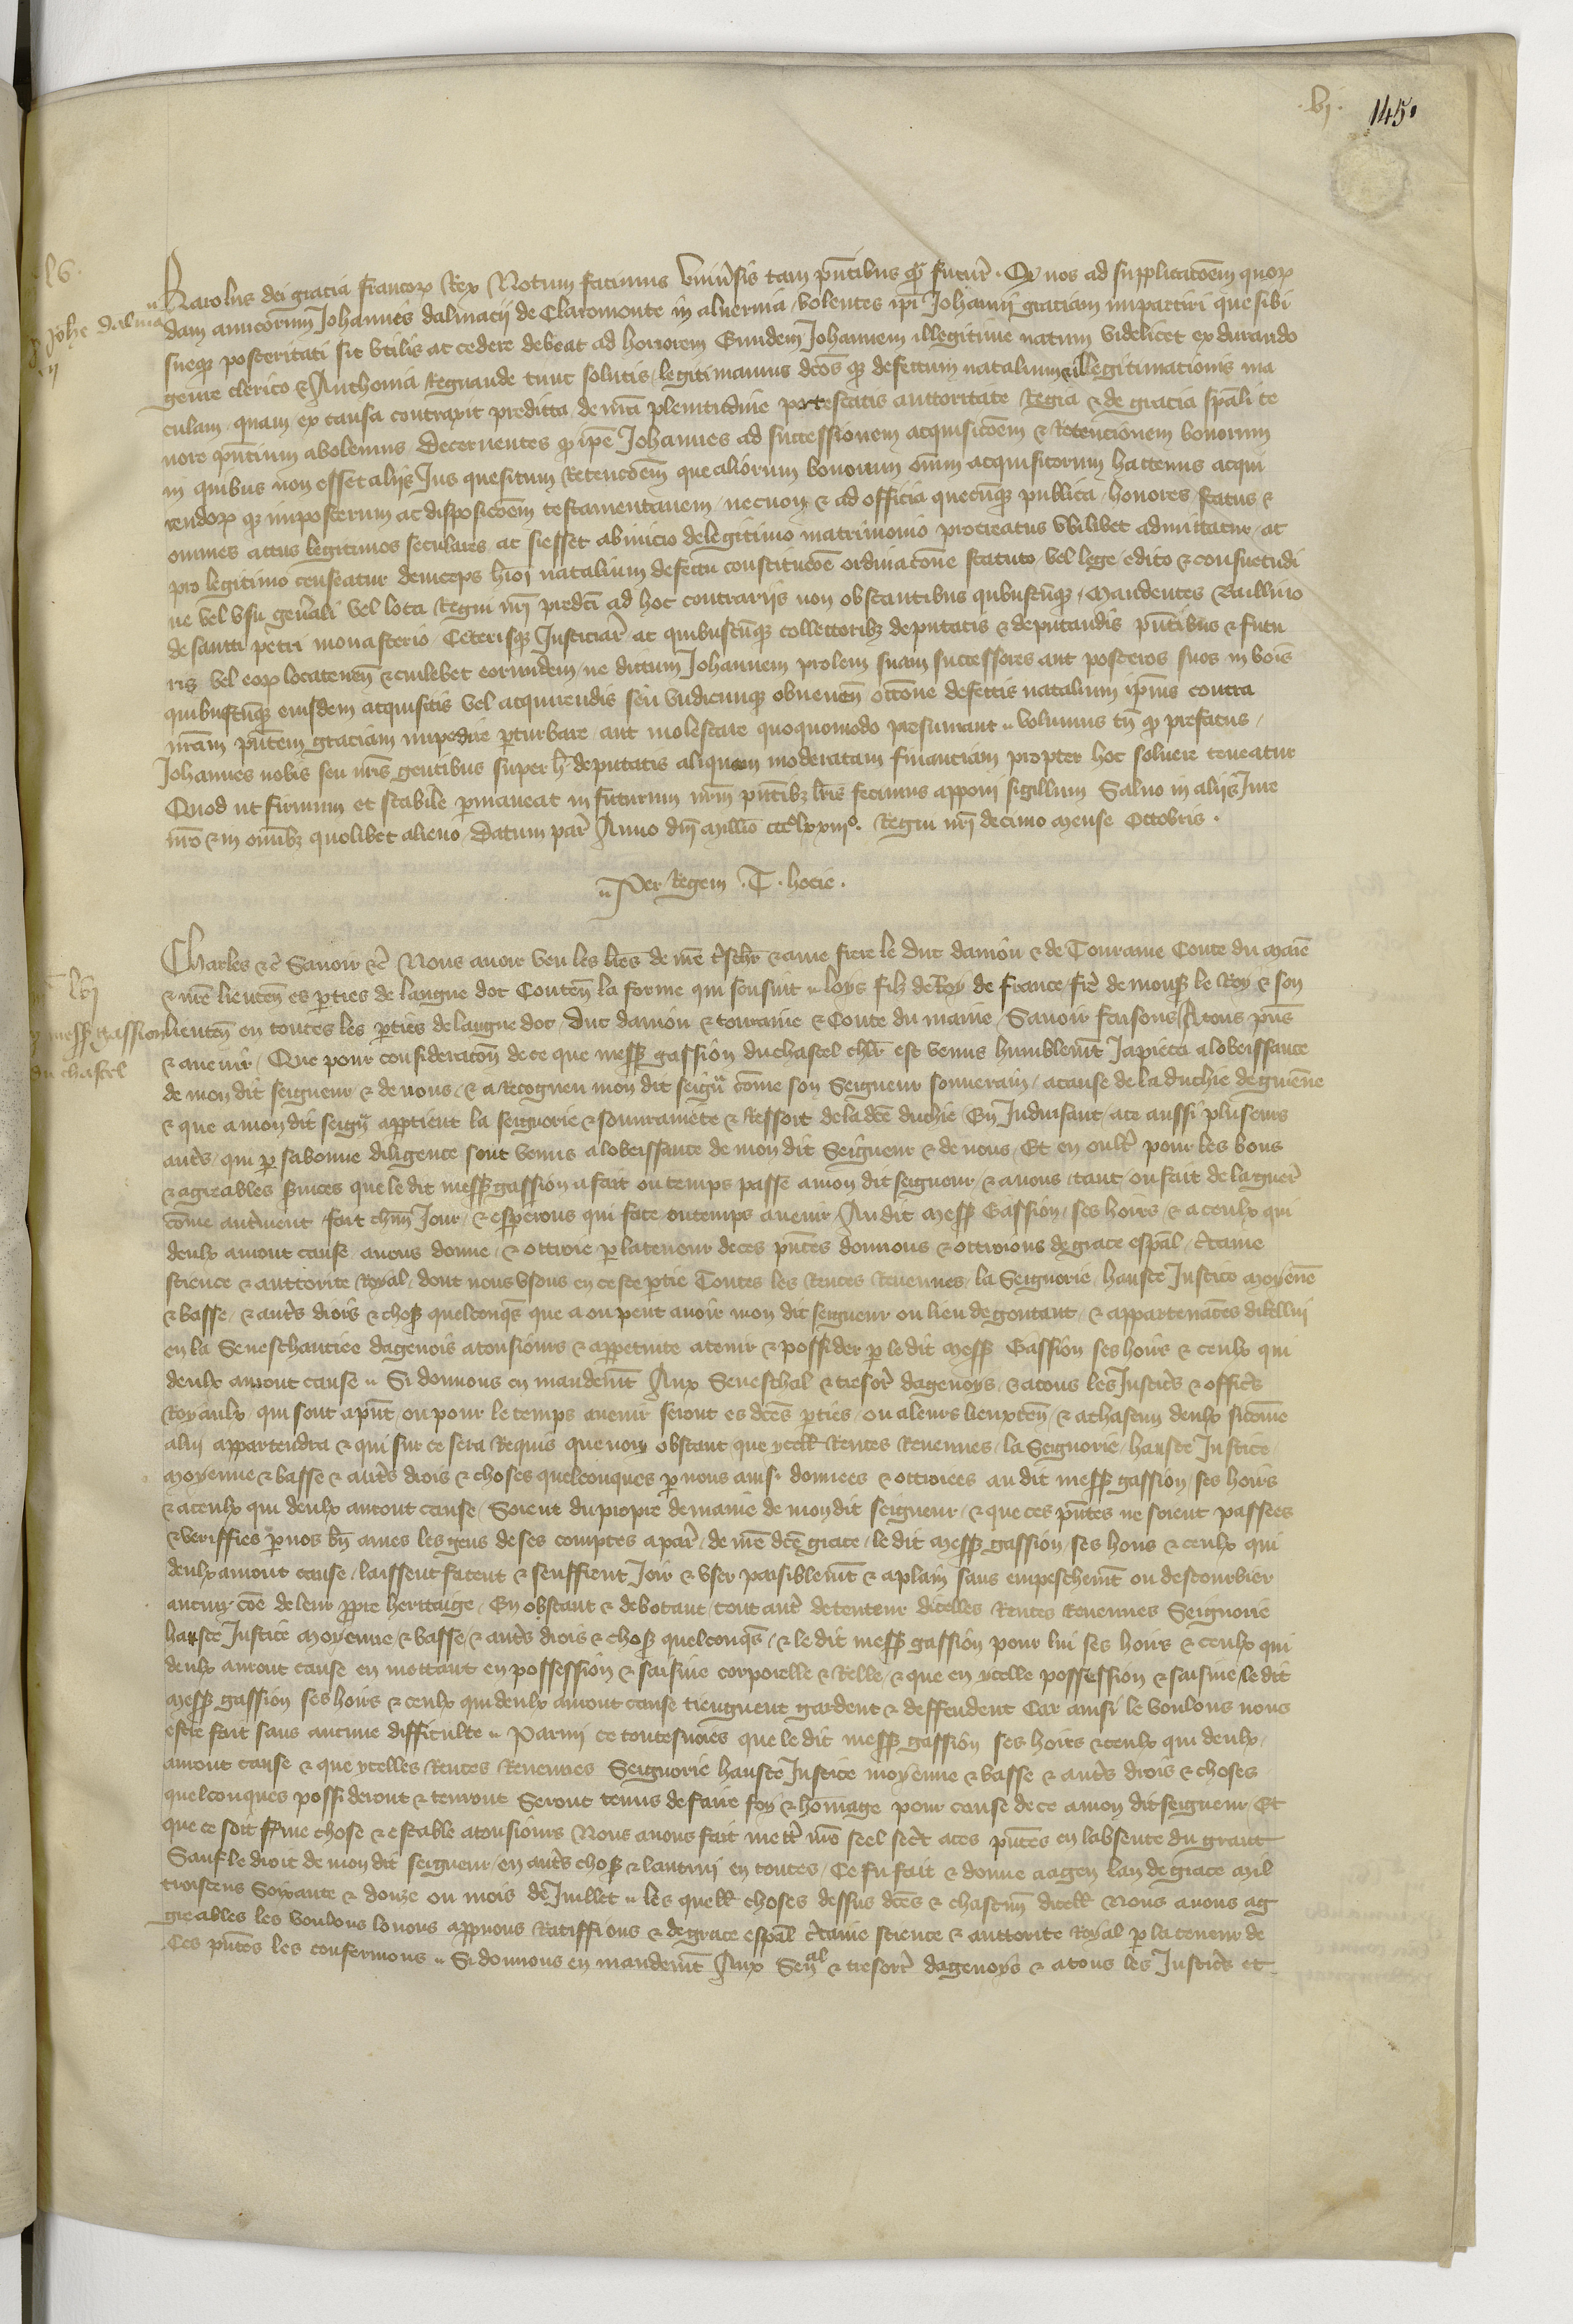 .vj. 145.
lv.
Karolus dei gracia francoꝝ Rex Notum facimus vniu'sis tam p̄ntibus ꝙ̄ futur' . Qꝫ nos ad supplicac̄oēm quoꝝ
p Johe dalmacij
dam amicorum Johannis dalmacij de Claromonte in aluernia / volentes ip̄i Johanni graciam impartiri que sibi
sueqꝫ posteritati sit vtilis ac cedere debeat ad honorem Eundem Johannem illegitime natum videlicet ex durando
genre clerico & Anthonia Regnaude tunc solutis / legitimamus dc̄os qꝫ defectum natalium & illegitimationis ma
culam / quam ex causa contraxit predicta de nr̄a plenitudine potestatis auctoritate Regia & de gracia sp̄ali te
nore p̄ntium abolemus / Decernentes ꝙ ip̄e Johannes ad successionem acquisic̄oēm & Retencionem bonorum
in quibus non esset alijs Jus quesitum Retenc̄oēm que aliorum bonorum om̄m acquisitorum hactenus acqui
rendoꝝ qꝫ imposterum ac disposic̄oēm testamentariem / necnon & ad officia quecūqꝫ publica / honores / status &
omnes actus legitimos seculares ac si esset ab inicio de legitimo matrimonio procreatus vbilibet admittatur / ac
pro legitimo censeatur deinceps h̄mōi natalium defectu constituc̄oē ordinac̄one statuto / vel lege edito & consuetudi
ne vel vsu gen'ali vel loca Regni nr̄i predc̄i ad hoc contrarijs non obstantibus quibuscūqꝫ / Mandentes Baillivo
de sancti petri monasterio Ceterisqꝫ Justiciar' ac quibuscūqꝫ collectoribꝫ deputatis & deputandis p̄ntibus & futu
ris vel eoꝝ locatenen̄ & cuilebet eorumdem ne dictum Johannem prolem suam successores aut posteros suos in bōis
quibuscūqꝫ eiusdem acquisitis vel acquirendis seu vndicunqꝫ obuenen̄ occ̄one defectus natalium ip̄ius contra
nr̄am p̄ntem graciam impedire ꝑturbare / aut molestare quoquomodo presumant .. volumus tn̄ ꝙ prefatus /
Johannes nobis seu nr̄is gentibus super h̄ deputatis aliquam moderatam financiam propter hoc soluere teneatur
Quod ut firmum et stabile ꝑmaneat in futurum nr̄m p̄ntibꝫ lr̄is fecimus apponi sigillum Saluo in alijs Jure
nr̄o & in om̄ibꝫ quolibet alieno / Datum par' Anno dn̄i Mill̄io ccc° lxxiij°. Regni nr̄i decimo Mense Octobris .
.. Per Regem . T . hocie .
lvj
Charles &c̄ Sauoir &c̄ Nous auoir veu les lr̄es de nr̄e t'sch'r & ame frere le duc daniou & de Touraine Conte du Maiē
& nr̄e lieuten̄ es ꝑties de langue doc Conten̄ la forme qui sensuit .. loys filz de Roy de france / fr̄e de monsꝫ le Roy & son
p messꝫ gassion
lieuten̄ en toutes les ꝑties de langue doc / Duc daniou & touraine & Conte du maine / Sauoir faisons A tous p̄ns
du chastel
& auenir / Que pour considerac̄on de ce que messꝫ gassion du chastel ch'lr est venus humblem̄t Japieca a lobeissance
de mon dit seigneur & de nous / & a Recogneu mon dit seign̄r cōme son Seigneur souuerain / acause de la duchie de guiēne
& que a mon dit seign̄r appartient la seignorie & souurainete & Ressort de la dc̄e duchie En Induisant / ace aussi pluseurs
aut's / qui ꝑ sa bonne diligence sont venus a lobeissance de mon dit Seigneur & de nous / Et en oult' pour les bons
& agreables s'uices que le dit messꝫ gassion a fait ou temps passe a mon dit seigneur / & a nous / tant ou fait de la guer'
cōme aut'ment fait ch'un Jour / & esperons qui face ou temps auenir / Au dit Messꝫ Gassion / ses hoirs / & a ceulx qui
deulx auront cause / auons donne / & ottroie ꝑ la teneur de ces p̄ntes donnons & ottroions de grace esp̄al / c'taine
science & auctorite Royal / dont nous vsons en ceste ꝑtie Toutes les Rentes Reuenues / la Seignorie / haulte Justice moyēne
& basse / & aut's drois & chosꝫ quelconqꝫs que a ou peut auoir mon dit seigneur ou lieu de gontaut / & appartenāces dicellui
en la Seneschaucie dagenois atousiours & a ꝑpetuite a tenir & possider ꝑ le dit Messꝫ Gassion ses hoirs & ceulx qui
deulx auront cause .. Si donnons en mandem̄t Aux Seneschal & tresor' dagenoys / & atous les Justic's & offic's
Royaulx / qui sont a p̄nt / ou pour le temps auenir seront es dc̄es ꝑties / ou a leurs lieuxten̄ / & a chascun deulx si cōme
a lui appartendra & qui sur ce sera Requis que non obstant que ycell' Rentes Reuenues / la Seignorie / haulte Justice
moyenne & basse & aut's drois & choses quelconques ꝑ nous ainsi donnees & ottroiees au dit messꝫ gassion / ses hoirs
& a ceulx qui deulx auront cause / Soient du propre demaine de mon dit seigneur / & que ces p̄ntes ne soient passees
& veriffies ꝑ nos bn̄ ames les gens de ses comptes a par' / de nr̄e dc̄e grace / le dit Messꝫ gassion / ses hoirs & ceulx qui
deulx auront cause / laissent facent & seuffrent Joir & vser paisiblem̄t & a plain sans empeschem̄t ou destourbier
aucun cōe de leur ꝓpre heritaige / En obstant & debotant / tout aut' detenteur dicelles Rentes Reuenues Seignorie
haulte Justice Moyenne / & basse / & aut's drois & chosꝫ quelconqꝫs / & le dit messꝫ gassion pour lui ses hoirs & ceulx qui
deulx auront cause en mettant en possession & saisine corporelle & Relle / & que en ycelle possession & saisine / le dit
Messꝫ gassion ses hoirs & ceulx qui deulx auront cause tiengnent gardent & deffendent Car ainsi le voulons nous
estre fait sans aucune difficulte .. Parmi ce toutesuoies que le dit messꝫ gassion ses hoirs & ceulx qui deulx /
auront cause & que ycelles Rentes Reuenues Seignorie haulte Justice moyenne & basse & aut's drois & choses
quelconques possideront & tenront Seront tenus de faire foy & hōmage pour cause de ce a mon dit seigneur / Et
que ce soit ferme chose & estable atousiours Nous auons fait mett' nr̄e seel sec't a ces p̄ntes en labsente du grant
Sauf le droit de mon dit seigneur / en aut's chosꝫ & lautrui en toutes / Ce fu fait & donne a agen lan de grace mil
troiscens Soixante & douze ou mois de Juillet .. les quell' choses dessus dc̄es & chascun̄ dicell' Nous auons ag
greables les voulons loons aꝓuons Ratiffions & de grace esp̄al c'taine science & auctorite Royal ꝑ la teneur de
Ces p̄ntes les confermons .. Si donnons en mandem̄t Aux Senal & tresor' dagenoys & a tous les Justic's et